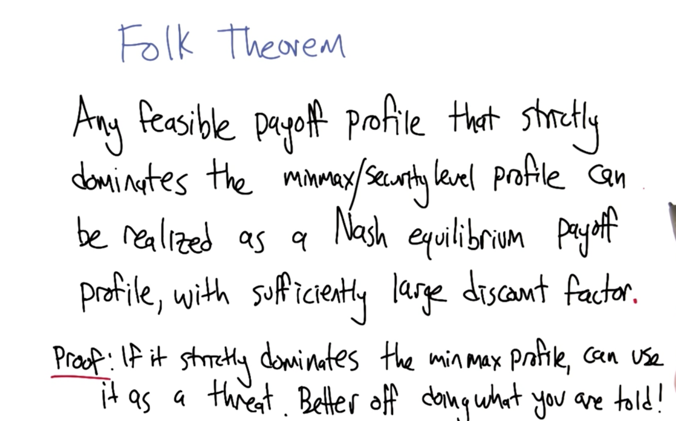 Folk Theorem
Any feasible payoff profile that strictly
dominates the minmax/security level profile can
be realized as a Nash equilibrium payoff
profile, with sufficiently large discount factor.
Proof: If it strictly dominates the minmax profile, can use
it as a threat. Better off doing what you are told!